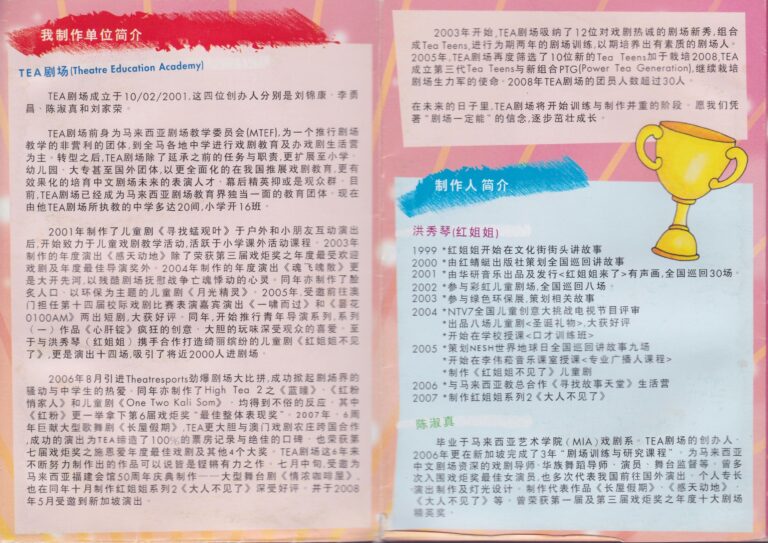 我制作单位简介
TEA剧场(Theatre Education Academy)
TEA剧场成立于10/02/2001,这四位创办人分别是刘锦康、李勇
昌、陈淑真和刘家荣。
TEA剧场前身为马来西亚剧场教学委员会(MTEF),为一个推行剧场
教学的非营利的团体,到全马各地中学进行戏剧教育及办戏剧生活营
为主。转型之后,TEA剧场除了延承之前的任务与职责,更扩展至小学、
幼儿园、大专甚至国外团体,以更全面化的在我国推展戏剧教育,更有
效果化的培育中文剧场未来的表演人才、幕后精英抑或是观众群。目
前,TEA剧场已经成为马来西亚剧场教育界独当一面的教育团体。现在
由他TEA剧场所执教的中学多达20间,小学开16班。
2001年制作了儿童剧《寻找蜢观叶》于户外和小朋友互动演出
后,开始致力于儿童戏剧教学活动,活跃于小学课外活动课程。2003年
制作的年度演出《感天动地》除了荣获第三届戏炬奖之年度最受欢迎
戏剧及年度最佳导演奖外。2004年制作的年度演出《魂飞魄散》更
是大开先河,以残酷剧场抚慰战争亡魂悸动的心灵。同年亦制作了脍
炙人口、以环保为主题的儿童剧《月光精灵》。2005年,受邀前往澳
门担任第十四届校际戏剧比赛表演嘉宾演出《一啸而过》和《昙花
0100AM》两出短剧,大获好评。同年,开始推行青年导演系列,系列
(一)作品《心肝锭》疯狂的创意、大胆的玩味深受观众的喜爱。至
于与洪秀琴(红姐姐)携手合作打造绮丽缤纷的儿童剧《红姐姐不见
了》,更是演出十四场,吸引了将近2000人进剧场。
2006年8月引进Theatresports劲爆剧场大比拼,成功掀起剧场界的
骚动与中学生的热爱。同年亦制作了High Tea 2之《蓝瞳》、《红粉
悄家人》和儿童剧《One Two Kali Som》、均得到不俗的反应。其中
《红粉》更一举拿下第6届戏炬奖"最佳整体表现奖"。2007年,6周
年巨献大型歌舞剧《长屋假期》,TEA更大胆与澳门戏剧农庄跨国合作
,成功的演出为TEA缔造了100%的票房记录与绝佳的口碑。也荣获第
七届戏炬奖之施恩爱年度最佳戏剧及其他4个大奖。TEA剧场这6年来
不断努力制作出的作品可以说皆是铿锵有力之作。七月中旬,受邀为
马来西亚福建会馆50周年庆典制作──大型舞台剧《情浓咖啡屋》,
也在同年十月制作红姐姐系列2《大人不见了》深受好评。并于2008
年5月受邀到新加坡演出。
2003年开始,TEA剧场吸纳了12位对戏剧热诚的剧场新秀,组合
成Tea Teens,进行为期两年的剧场训练,以期培养出有素质的剧场人。
2005年,TEA剧场再度筛选了10位新的Tea Teens加于栽培2008,TEA
成立第三代Tea Teens与新组合PTG(Power Tea Generation),继续栽培
剧场生力军的使命。2008年TEA剧场的团员人数超过30人。
在未来的日子里,TEA剧场将开始训练与制作并重的阶段。愿我们凭
著"剧场一定能"的信念,逐步茁壮成长。
制作人简介
洪秀琴(红姐姐)
1999 *红姐姐开始在文化街街头讲故事
2000 *由红蜻蜓出版社策划全国巡回讲故事
2001 *由华研音乐出品及发行<红姐姐来了>有声画,全国巡回30场。
2002 *参与彩虹儿童剧场,全国巡回八场。
2003 *参与绿色环保展,策划相关故事
2004 *NTV7全国儿童创意大挑战电视节目评审
*出品八场儿童剧<圣诞礼物>,大获好评
*开始在学校授课<口才训练班>
2005 *策划NESH世界地球日全国巡回讲故事九场
*开始在李伟菘音乐课室授课<专业广播人课程>
*制作《红姐姐不见了》儿童剧
2006 *与马来西亚教总合作《寻找故事天堂》生活营
2007 *制作红姐姐系列2《大人不见了》
陈淑真
毕业于马来西亚艺术学院(MIA)戏剧系。TEA剧场的创办人。
2006年更在新加坡完成了3年"剧场训练与研究课程"。为马来西亚
中文剧场资深的戏剧导师、华族舞蹈导师、演员、舞台监督等。曾多
次入围戏炬奖最佳女演员,也多次代表我国前往国外演出。个人专长
演出制作及灯光设计。制作代表作品《长屋假期》、《感天动地》、
《大人不见了》等。曾荣获第一届及第三届戏炬奖之年度十大剧场
精英奖。